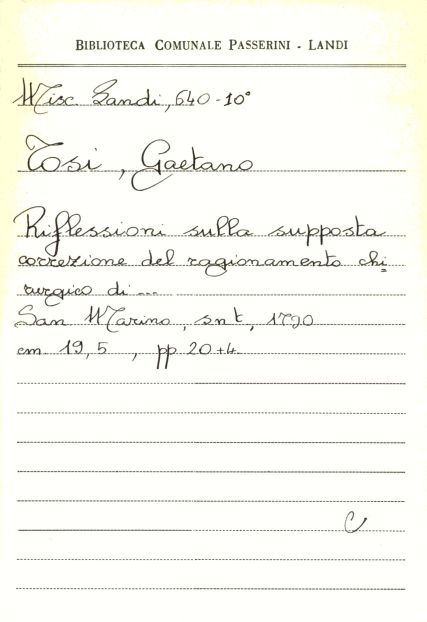 BIBLIOTECA COMUNALE PASSERINI - LANDI
Misc. Landi, 640-10°
Tosi, Gaetano
Riflessioni sulla supposta
correzione del ragionamento chi=
rurgico di ...
San Marino, snt, 1790
cm. 19,5, pp 20+4
C